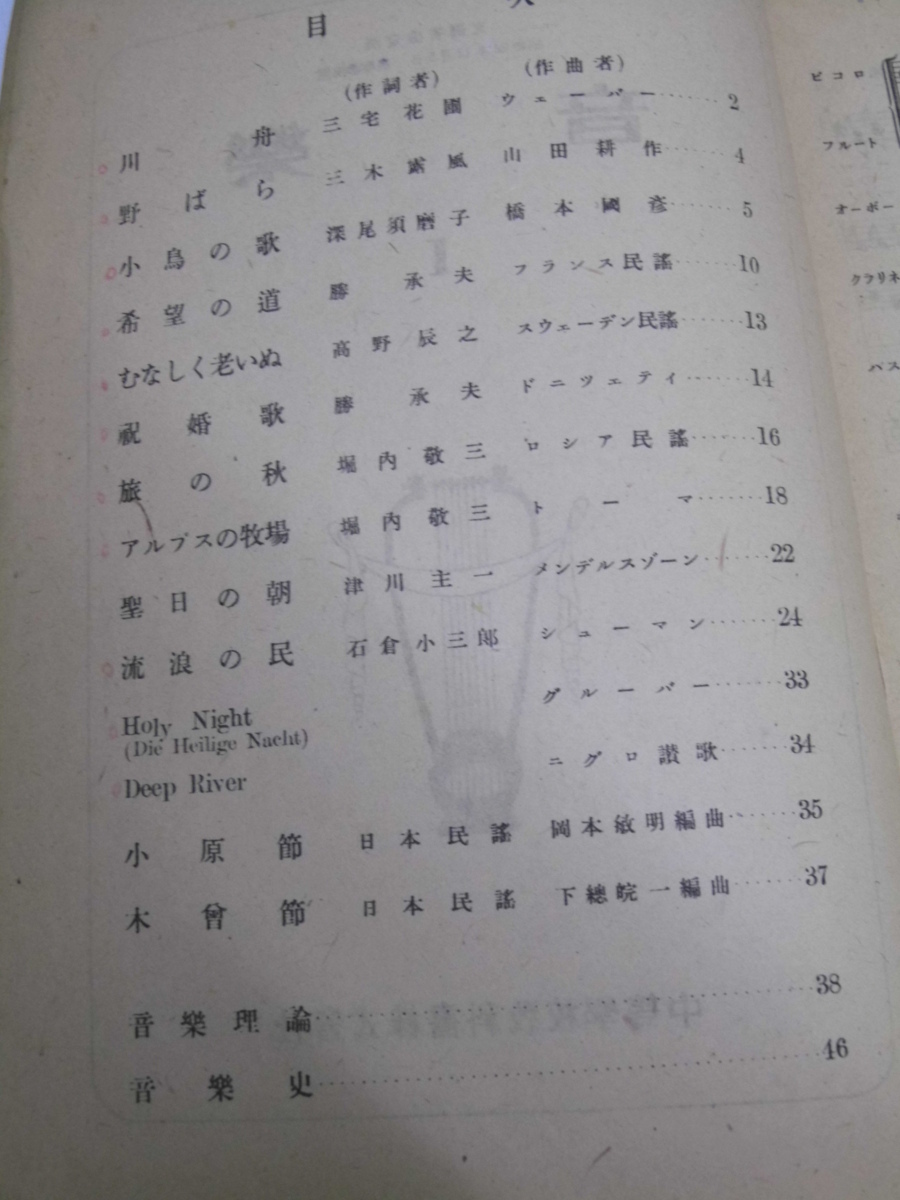 目 次
(作詞者) (作曲者)
川舟 三宅花圃 ウェーバー……2
野ばら 三木露風 山田耕作……4
小鳥の歌 深尾須磨子 橋本國彦……5
希望の道 勝承夫 フランス民謠……10
むなしく老いぬ 高野辰之 スウェーデン民謠……13
祝婚歌 勝承夫 ドニツェティ……14
旅の秋 堀内敬三 ロシア民謠……16
アルプスの牧場 堀内敬三 トーマ……18
聖日の朝 津川主一 メンデルスゾーン……22
流浪の民 石倉小三郎 シューマン……24
Holy Night グルーバー……33
(Die Heilige Nacht)
Deep River ニグロ讃歌……34
小原節 日本民謠 岡本敏明編曲……35
木曾節 日本民謠 下總皖一編曲……37
音樂理論……38
音樂史……46
ピコロ
フルート
オーボー
クラリネ
バス
音樂
1